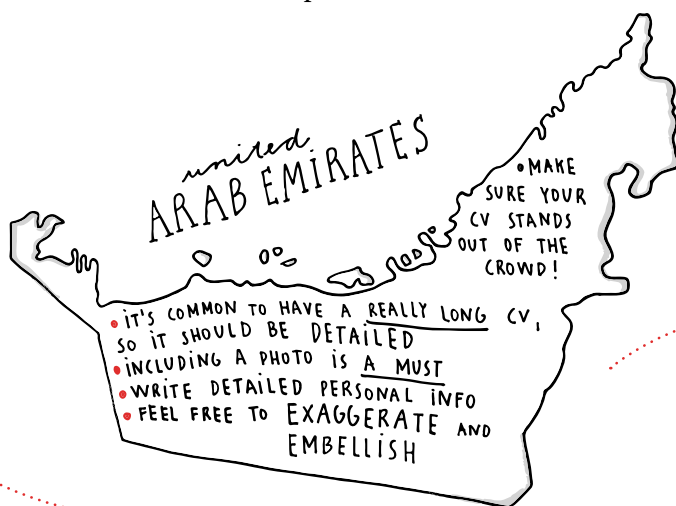 united
ARAB EMiRATES
•MAKE
SURE YOUR
CV STANDS
OUT OF THE
CROWD!
• iT'S COMMON TO HAVE A REALLY LONG CV,
SO iT SHOULD BE DETAiLED
• iNCLUDiNG A PHOTO iS A MUST
• WRiTE DETAiLED PERSONAL iNFO
• FEEL FREE TO EXAGGERATE AND
EMBELLiSH